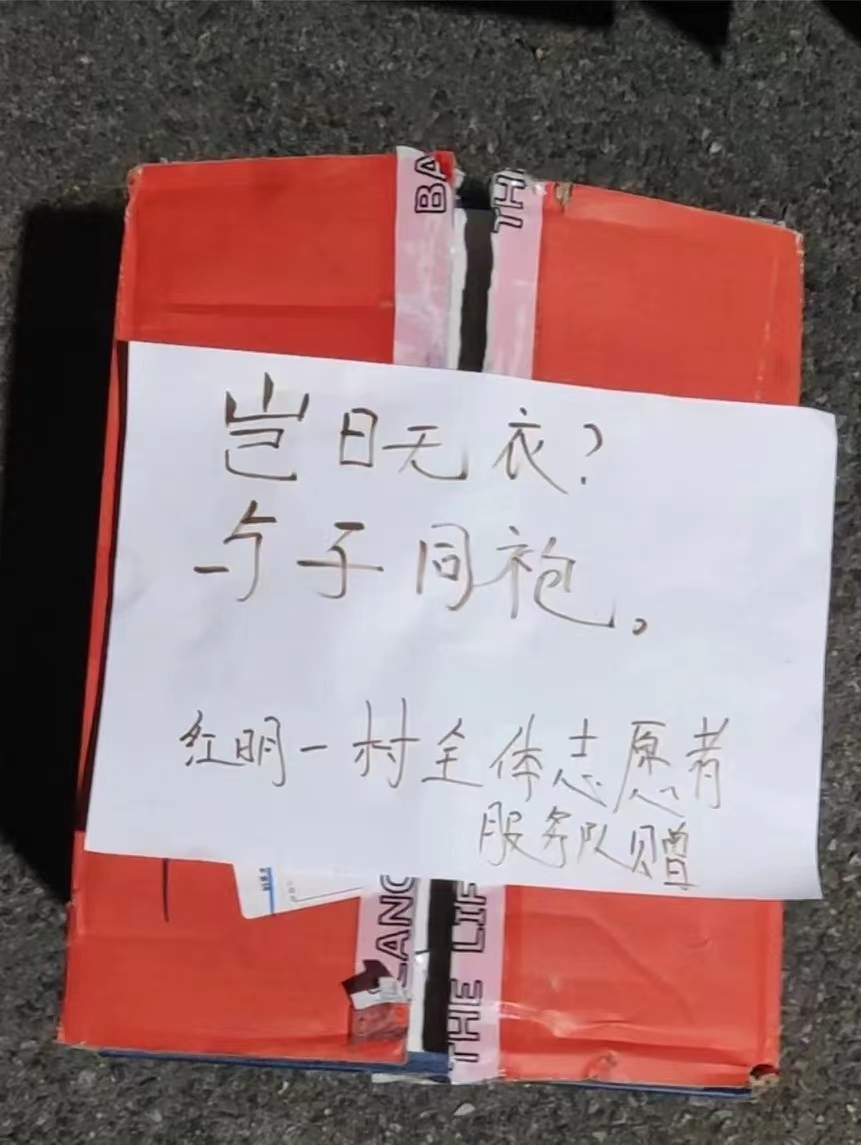 BA
TH
岂曰无衣？
与子同袍。
红明一村全体志愿者
服务队赠
LANC
THE LIF